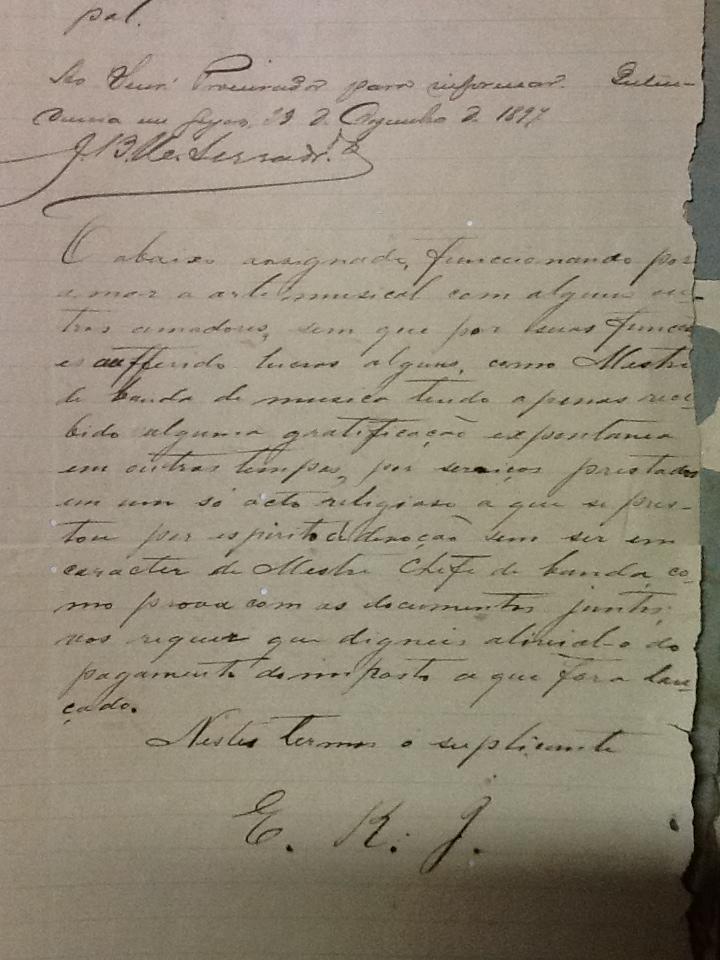 pal.
Ao Snr. Procurador para informar. Inten-
dencia em 23 de Dezembro de 1897
O abaixo assignado, funccionando por
amor a arte musical com alguns ou-
tros amadores, sem que por suas func
es aufferido lucros alguns, como Mestre
de banda de musica tendo apenas rece-
bido alguma gratificação expontanea
em outros tempos, por serviços prestados
em um só acto religioso a que se pres-
tou por espirito de devoção sem ser em
caracter de Mestre Chefe de banda, co-
mo prova com os documentos juntos,
vos requer que digneis alivial-o do
pagamento do imposto a que fora lan-
çado.
Nestes termos o suplicante
E. R. J.